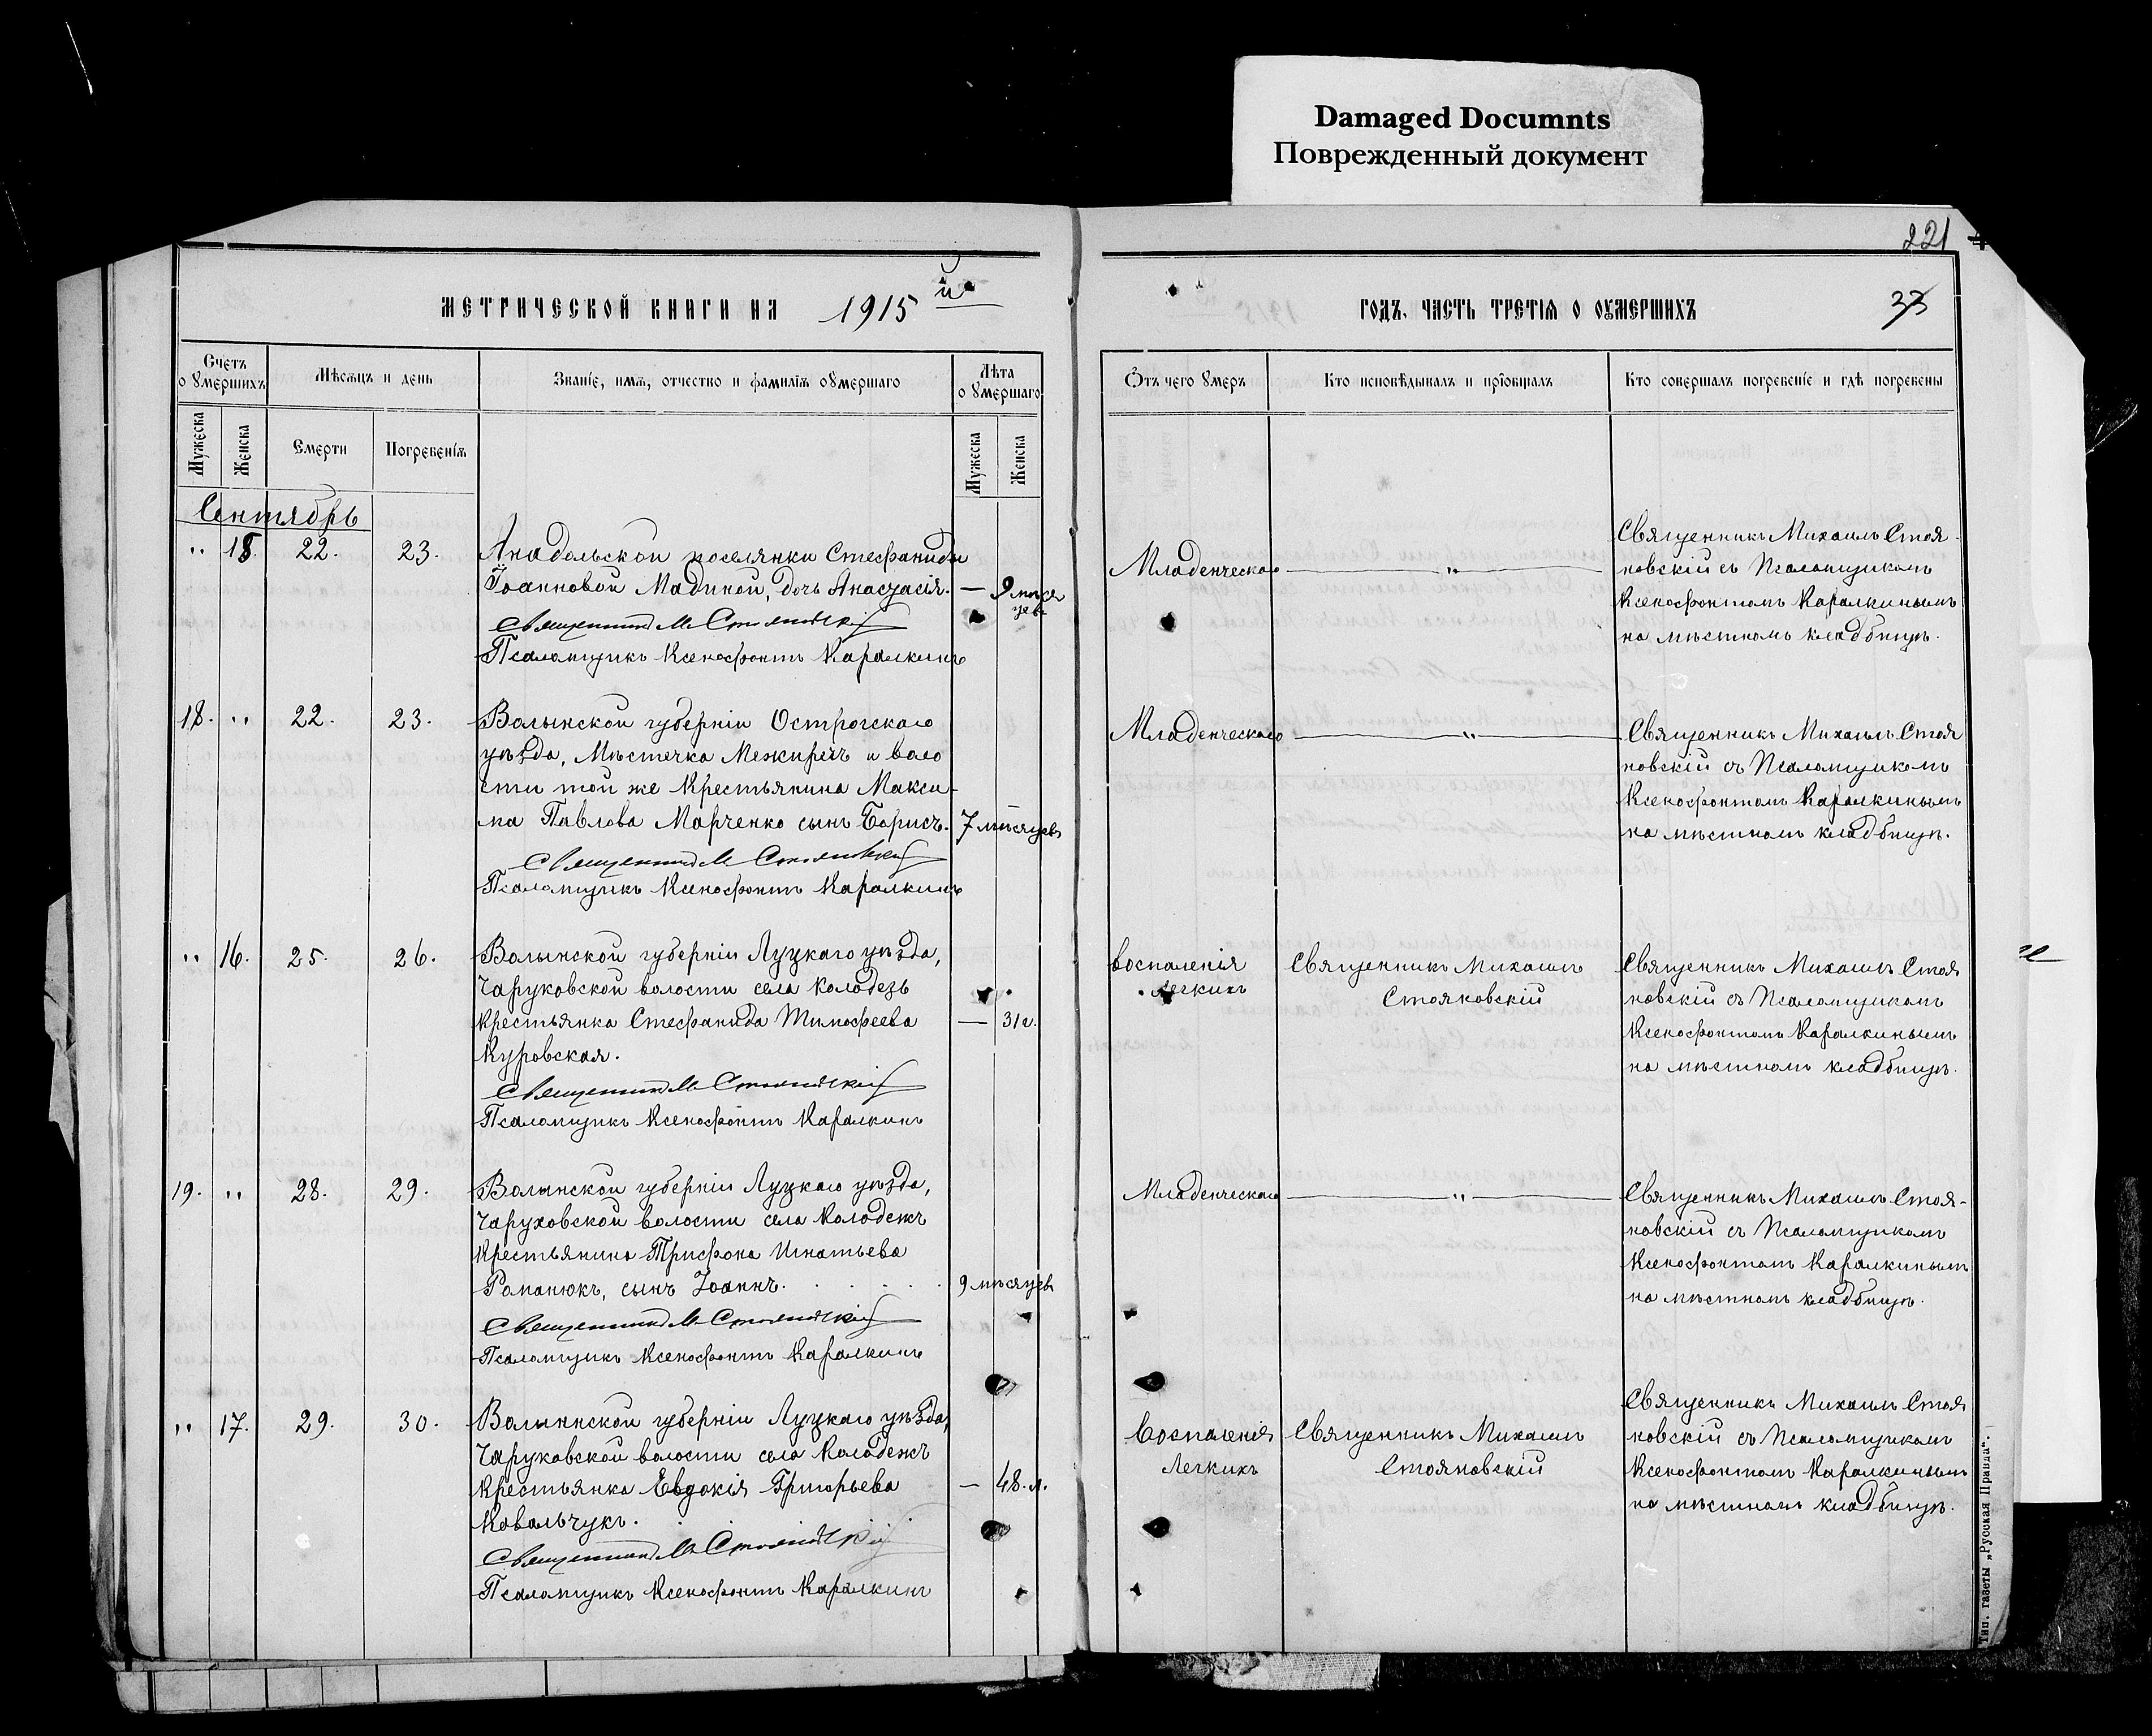 Damaged Documnts
Поврежденный документ
221
МЕТРИЧЕСКОЙ КНИГИ НА 1915 й
ГОДЪ. ЧАСТЬ ТРЕТІЯ О ОУМЕРШИХЪ
33
Счетъ о умершихъ
Мѣсяцъ и день
Званіе, имя, отчество и фамилія оумершаго
Лѣта о умершаго
Отъ чего умеръ
Кто исповѣдывалъ и пріобщалъ
Кто совершалъ погребеніе и гдѣ погребены
Мужеска
Женска
Смерти
Погребенія
Мужеска
Женска
Сентябрь
" 15. 22. 23.
Анадольской поселянки Стефаниды
Іоанновой Мадиной, дочь Анастасія. — 9 мѣся
цевъ
Священникъ М Стояновскій
Псаломщикъ Ксенофонтъ Каралкинъ
Младенческаго — " —
Священникъ Михаилъ Стоя-
новскій съ Псаломщикомъ
Ксенофонтомъ Каралкинымъ
на мѣстномъ кладбищѣ.
18. " 22. 23.
Волынской губерніи Острогскаго
уѣзда, Мѣстечка Межиречъ и воло
сти той же Крестьянина Макси-
ма Павлова Марченко сынъ Борисъ. 7 мѣсяцевъ
Священникъ М Стояновскій
Псаломщикъ Ксенофонтъ Каралкинъ
Младенческаго — " —
Священникъ Михаилъ Стоя
новскій съ Псаломщикомъ
Ксенофонтомъ Каралкинымъ
на мѣстномъ кладбищѣ.
" 16. 25. 26.
Волынской губерніи Луцкаго уѣзда,
Чаруковской волости села Колодезь
Крестьянка Стефанида Тимофеева — 31 л.
Куровская.
Священникъ М Стояновскій
Псаломщикъ Ксенофонтъ Каралкинъ
воспаленія
легкихъ
Священникъ Михаилъ
Стояновскій
Священникъ Михаилъ Стоя
новскій съ Псаломщикомъ
Ксенофонтомъ Каралкинымъ
на мѣстномъ кладбищѣ.
19. " 28. 29.
Волынской губерніи Луцкаго уѣзда,
Чаруховской волости села Колодежъ
Крестьянина Трифона Игнатьева
Романюкъ, сынъ Іоаннъ. 9 мѣсяцевъ
Священникъ М Стояновскій
Псаломщикъ Ксенофонтъ Каралкинъ
Младенческаго — " —
Священникъ Михаилъ Стоя-
новскій съ Псаломщикомъ
Ксенофонтомъ Каралкинымъ
на мѣстномъ кладбищѣ.
" 17. 29. 30.
Волынской губерніи Луцкаго уѣзда,
Чаруковской волости села Колодежъ
Крестьянка Евдокія Григорьева — 48. л.
Ковальчукъ.
Священникъ М Стояновскій
Псаломщикъ Ксенофонтъ Каралкинъ
Воспаленія
Легкихъ
Священникъ Михаилъ
Стояновскій
Священникъ Михаилъ Стоя
новскій съ Псаломщикомъ
Ксенофонтомъ Каралкинымъ
на мѣстномъ кладбищѣ.
Тип. газеты „Русская Правда".